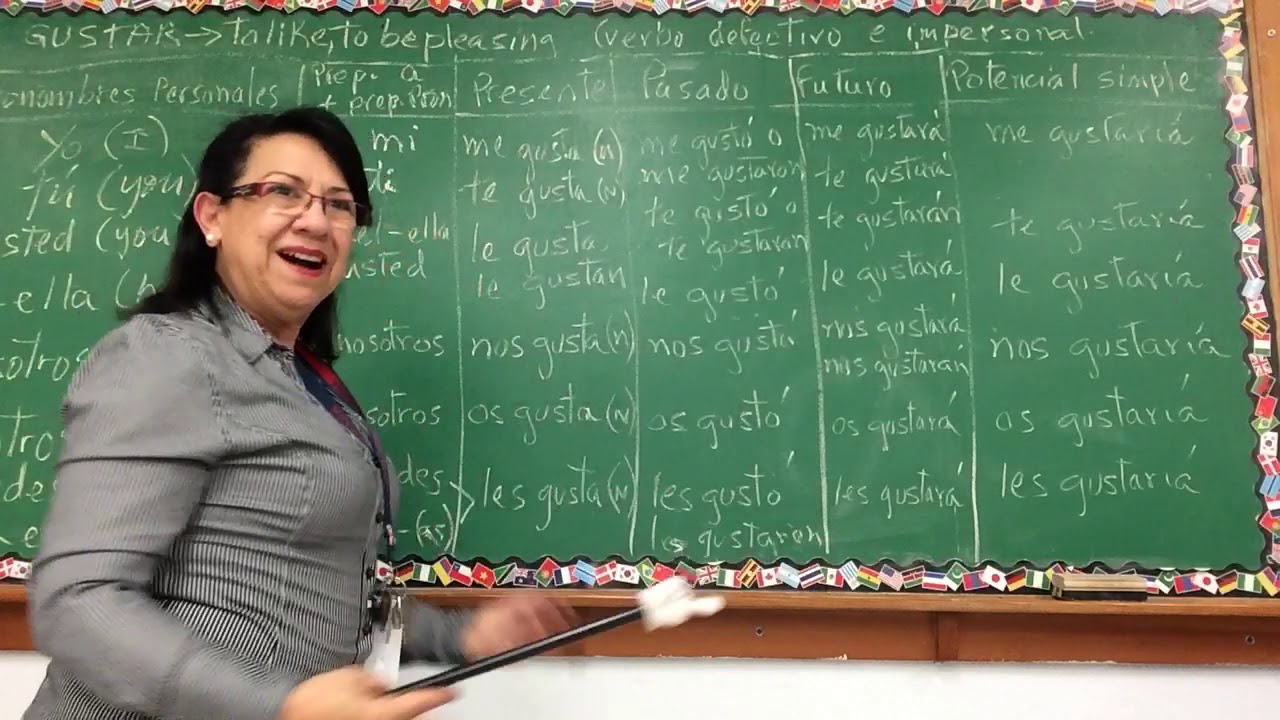 GUSTAR → to like, to be pleasing (verbo defectivo e impersonal.
onombres Personales
Prep. a
+ preposition
Presente
Pasado
Futuro
Potencial simple
Yo (I)
mi
me gusta (n)
me gustó o
me gustaron
me gustará
me gustaría
tú (you)
ti
te gusta (n)
te gustó o
te gustaron
te gustará
te gustarán
te gustaría
sted (you
el-ella
usted
le gusta
le gustan
le gustó
le gustará
le gustaría
-ella (h
nosotros
nos gusta (n)
nos gustó
nos gustará
nos gustarán
nos gustaría
sotros
os gusta (n)
os gustó
os gustará
os gustaría
des
les gusta (n)
les gustó
les gustaron
les gustará
les gustaría